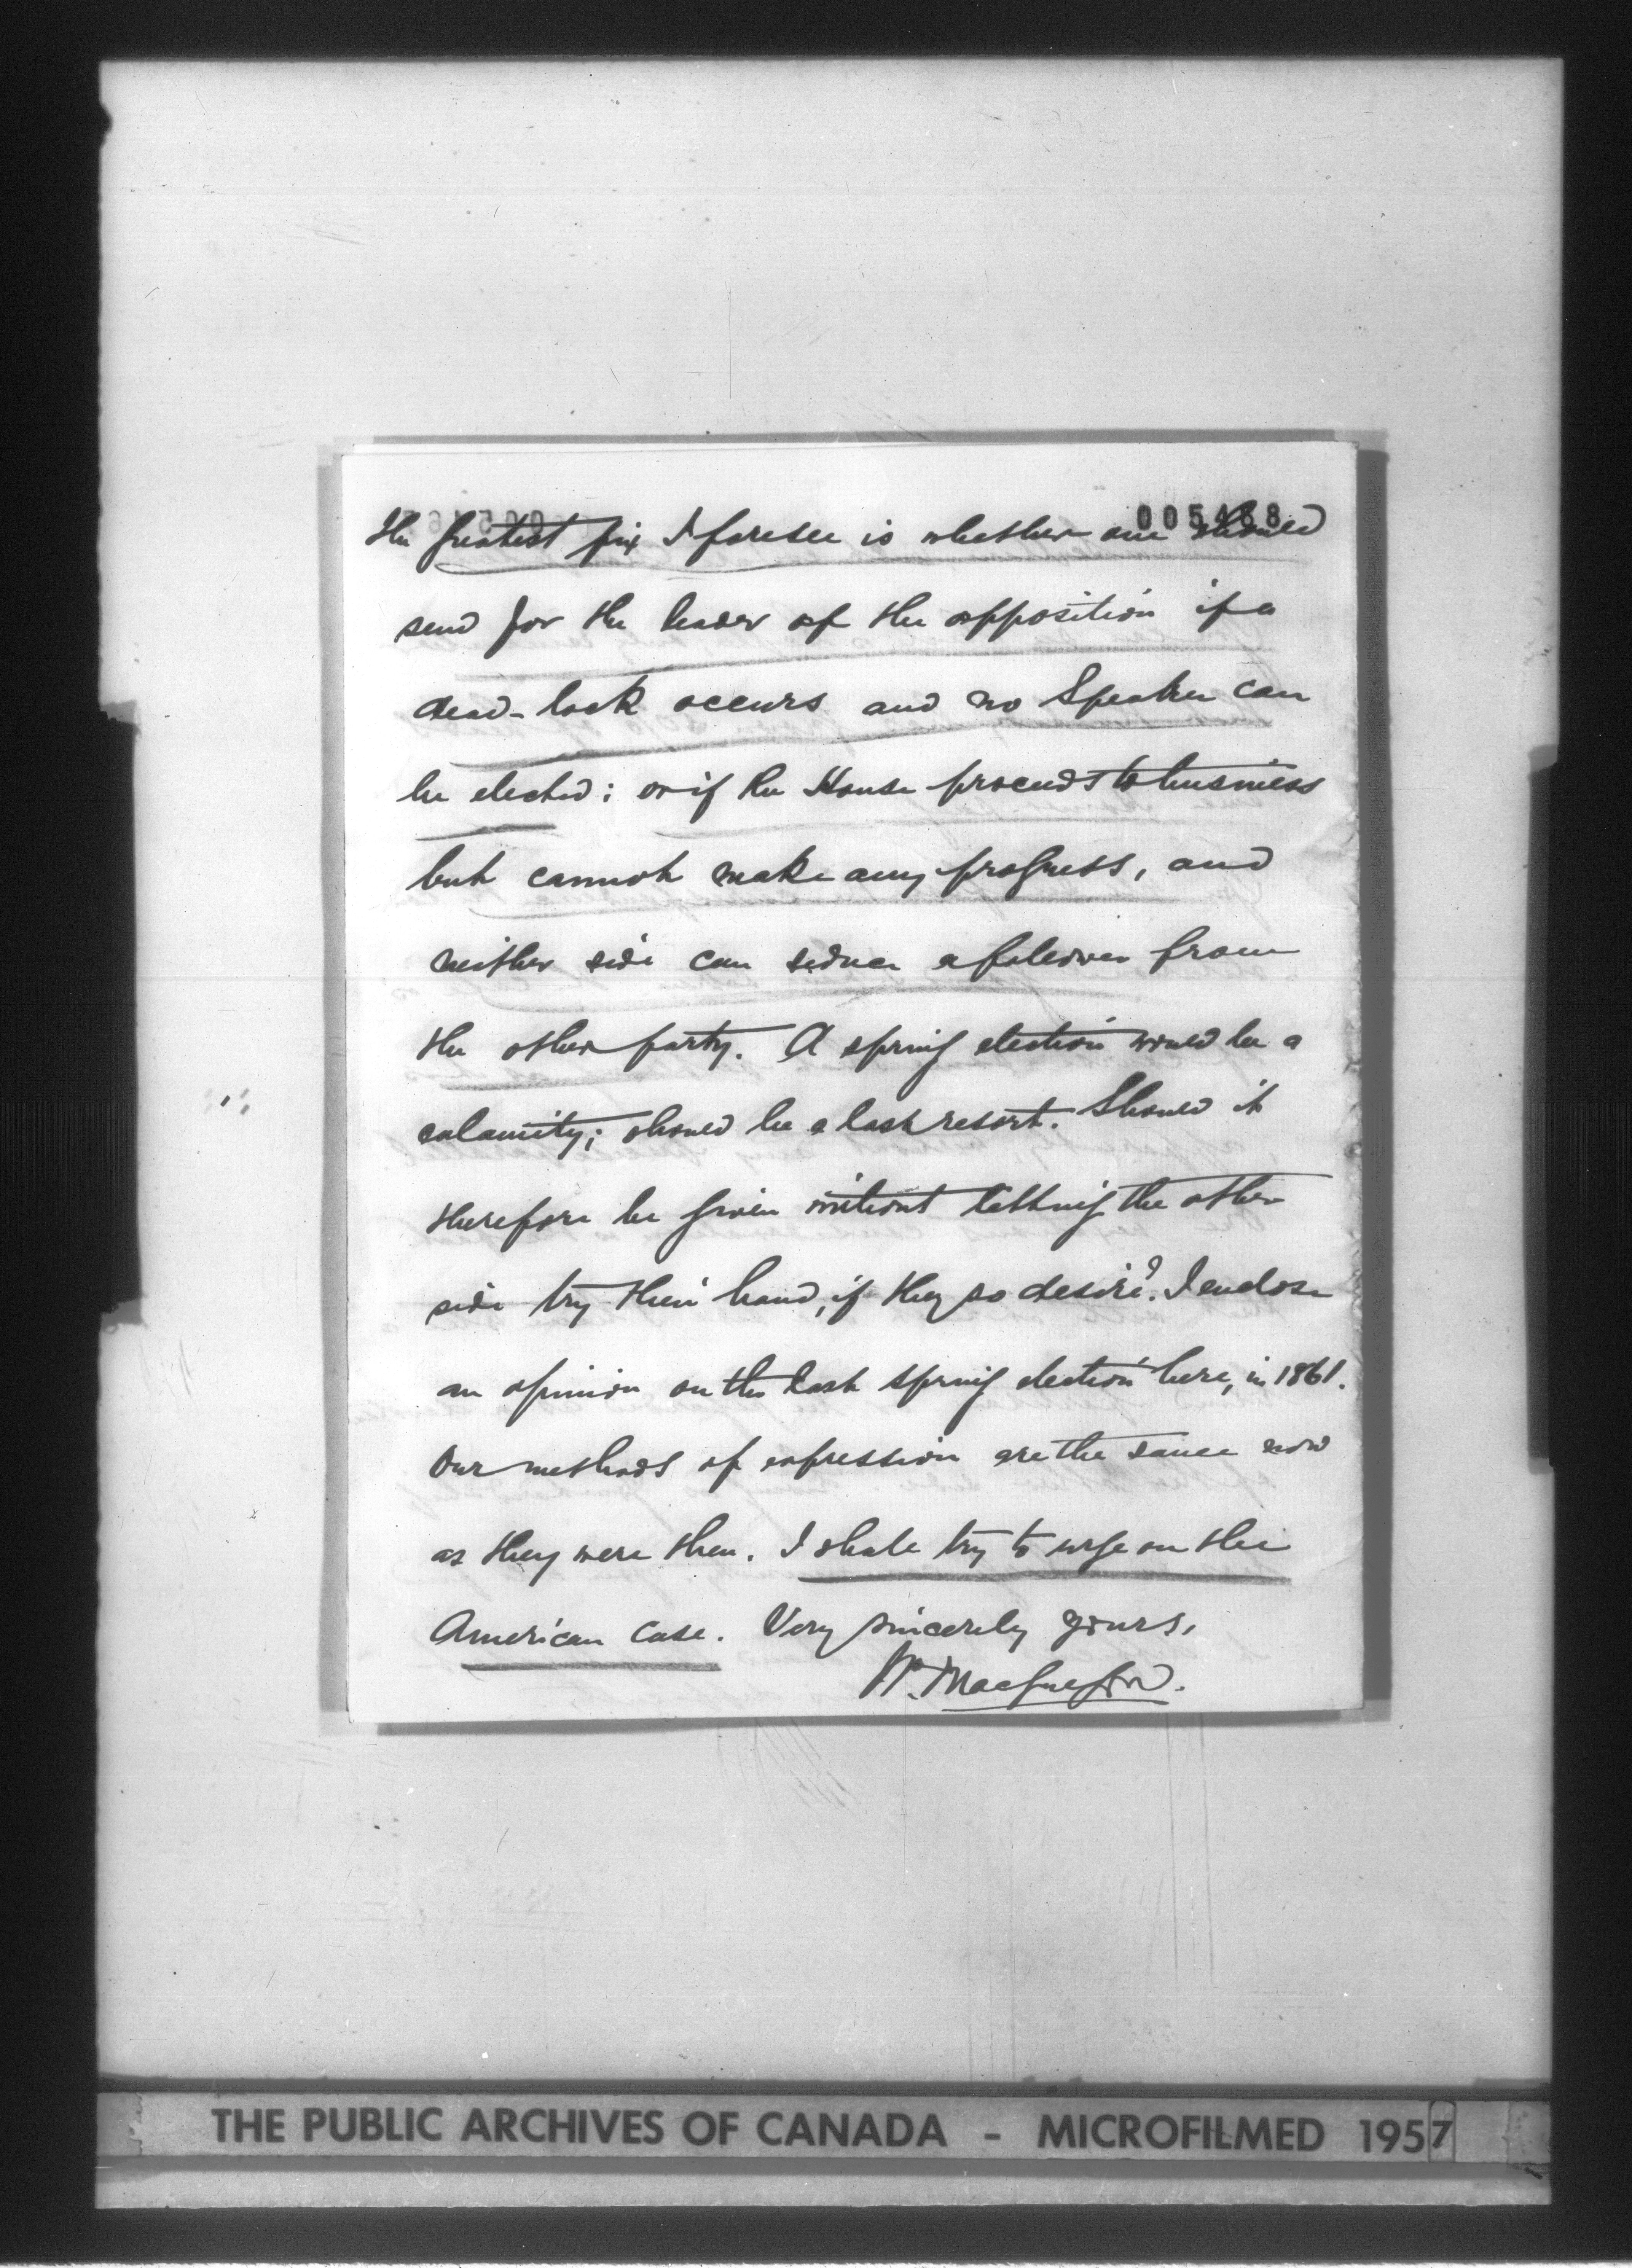 005468
the greatest fix I foresee is whether one should
send for the leader of the opposition if a
dead-lock occurs and no Speaker can
be elected; or if the House proceeds to business
but cannot make any progress, and
neither side can seduce a follower from
the other party. A spring election would be a
calamity; should be a last resort. Should it
therefore be given without letting the other
side try their hand, if they so desire? I enclose
an opinion on the last spring election here, in 1861.
Our methods of expression are the same now
as they were then. I shall try to urge on the
American case. Very sincerely yours,
Wm. MacGregor.
THE PUBLIC ARCHIVES OF CANADA - MICROFILMED 1957